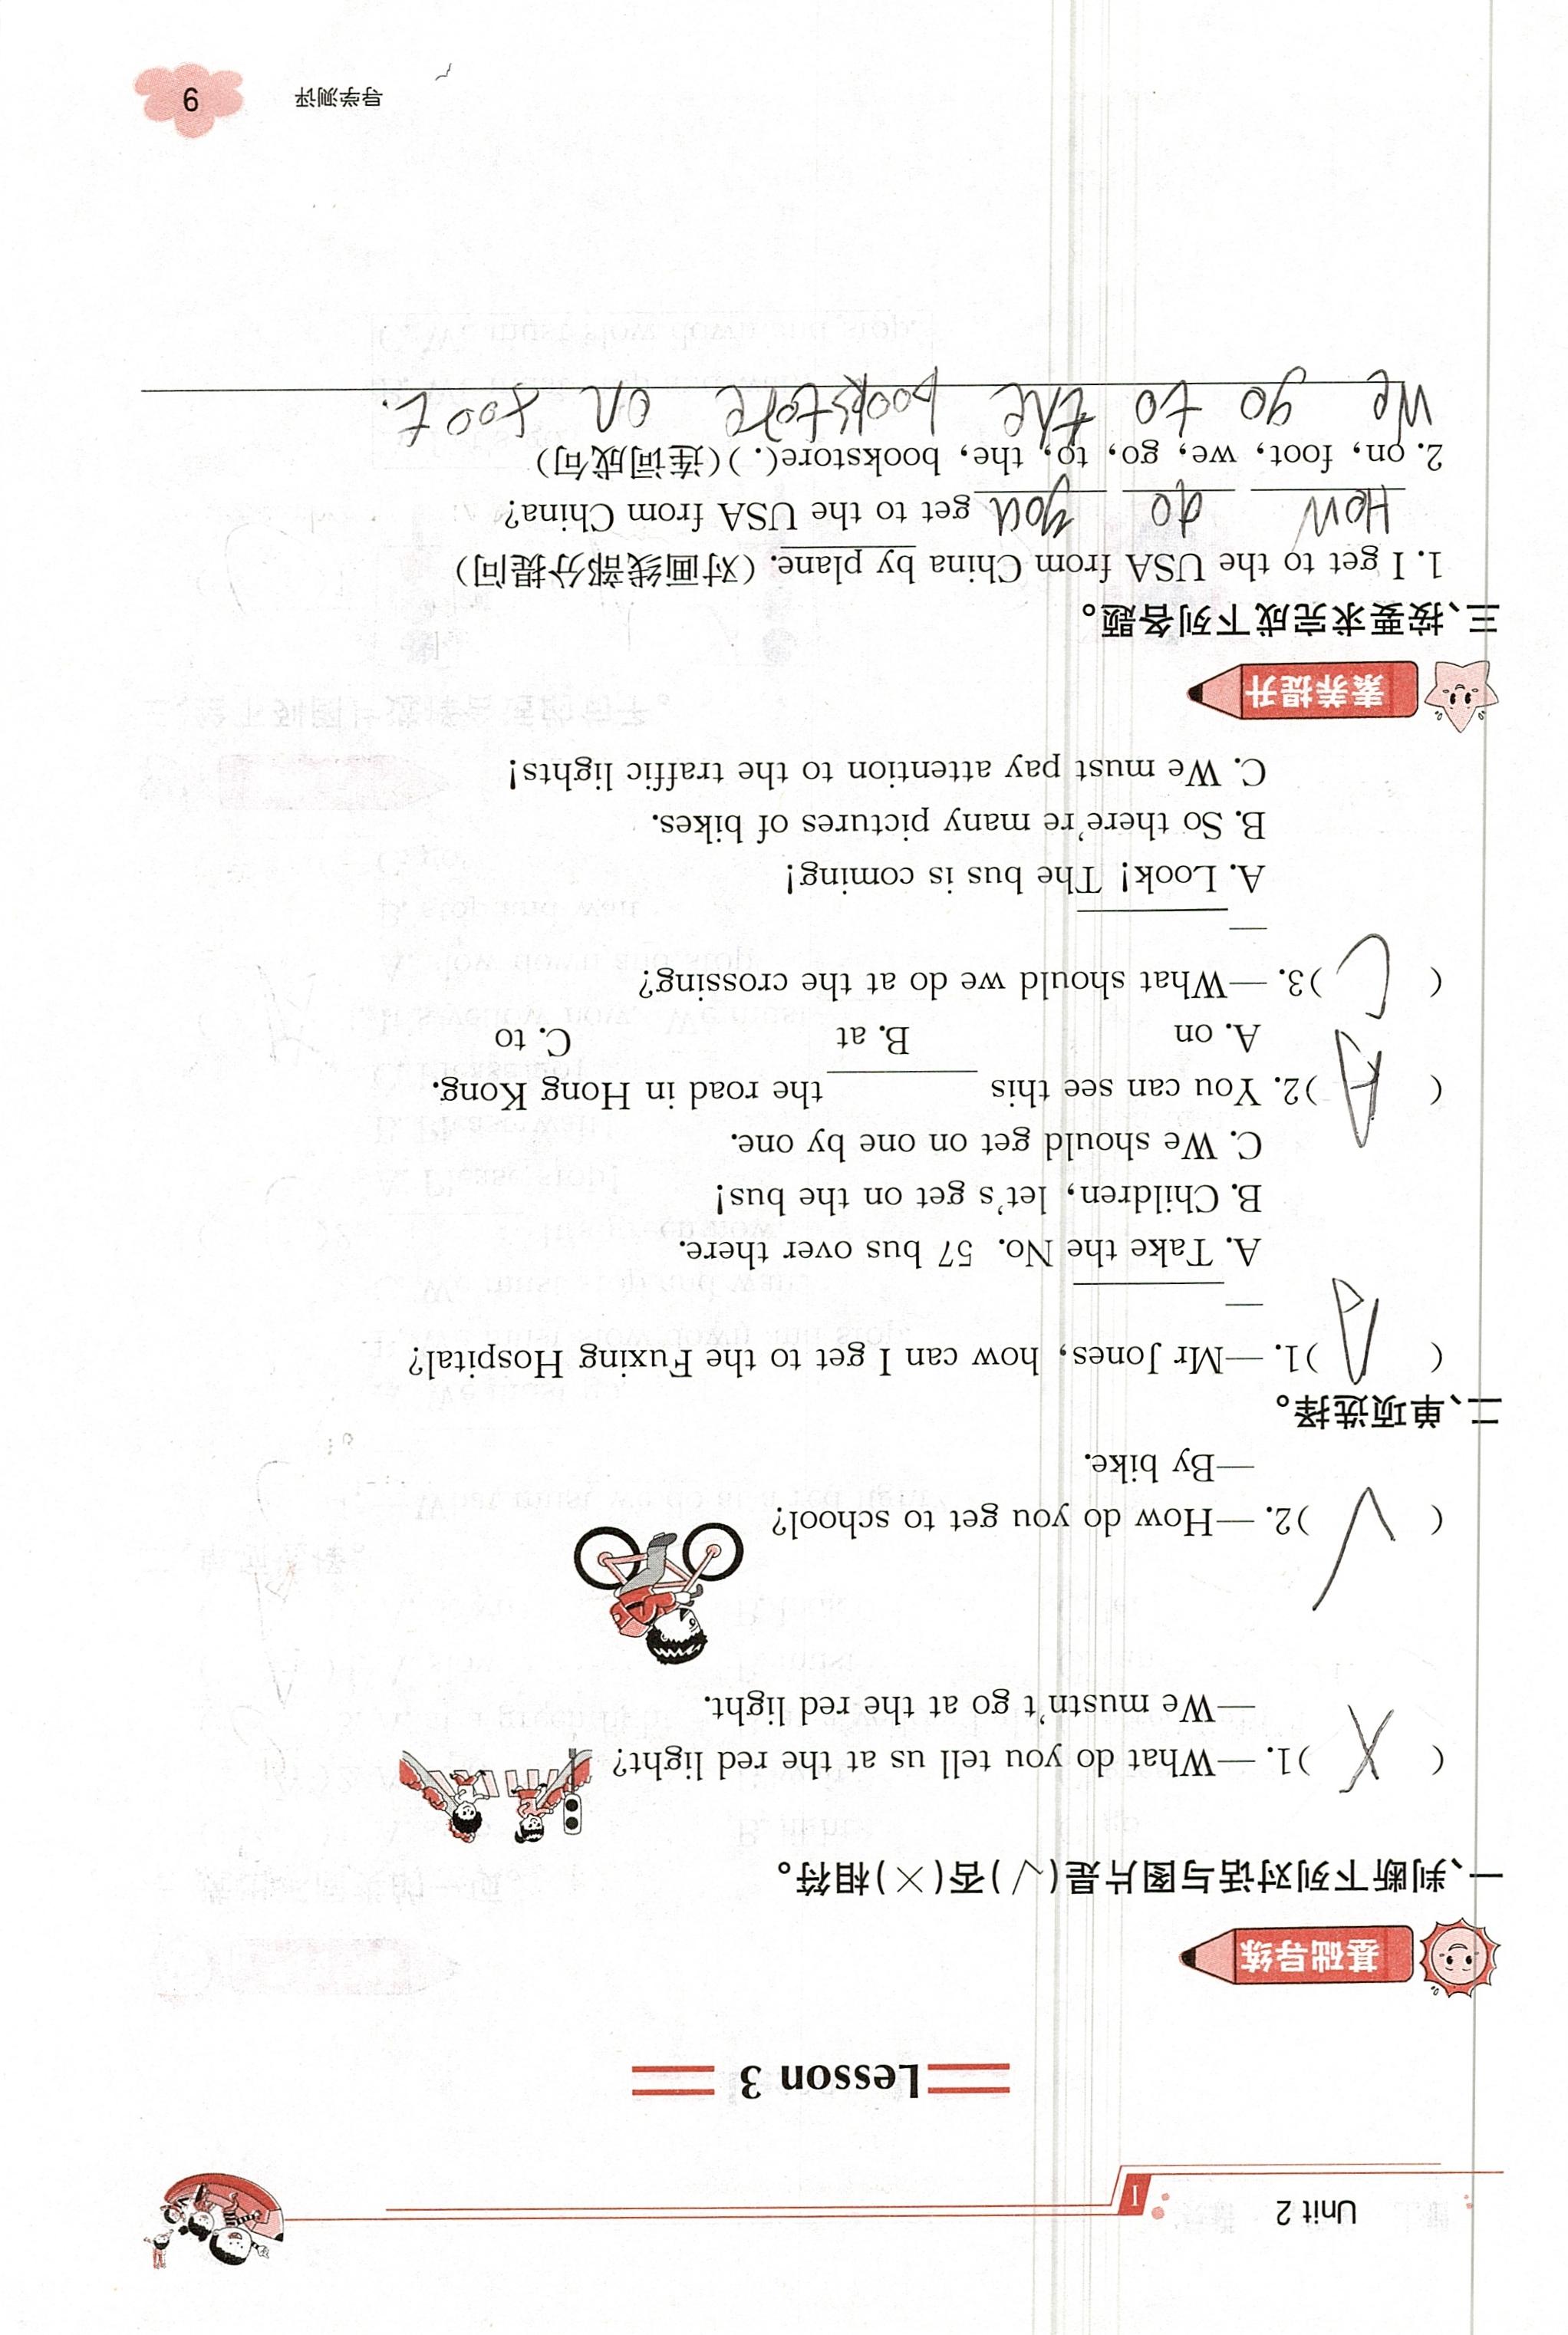 Unit 2
Lesson 3
基础导练
一、判断下列对话与图片是(√)否(×)相符。
( X )1. —What do you tell us at the red light?
—We mustn't go at the red light.
( √ )2. —How do you get to school?
—By bike.
二、单项选择。
( A )1. —Mr Jones, how can I get to the Fuxing Hospital?
— ________
A. Take the No. 57 bus over there.
B. Children, let's get on the bus!
C. We should get on one by one.
( A )2. You can see this ________ the road in Hong Kong.
A. on B. at C. to
( C )3. —What should we do at the crossing?
— ________
A. Look! The bus is coming!
B. So there're many pictures of bikes.
C. We must pay attention to the traffic lights!
素养提升
三、按要求完成下列各题。
1. I get to the USA from China by plane. (对画线部分提问)
How do you get to the USA from China?
2. on, foot, we, go, to, the, bookstore(.)(连词成句)
We go to the bookstore on foot.
导学测评 9